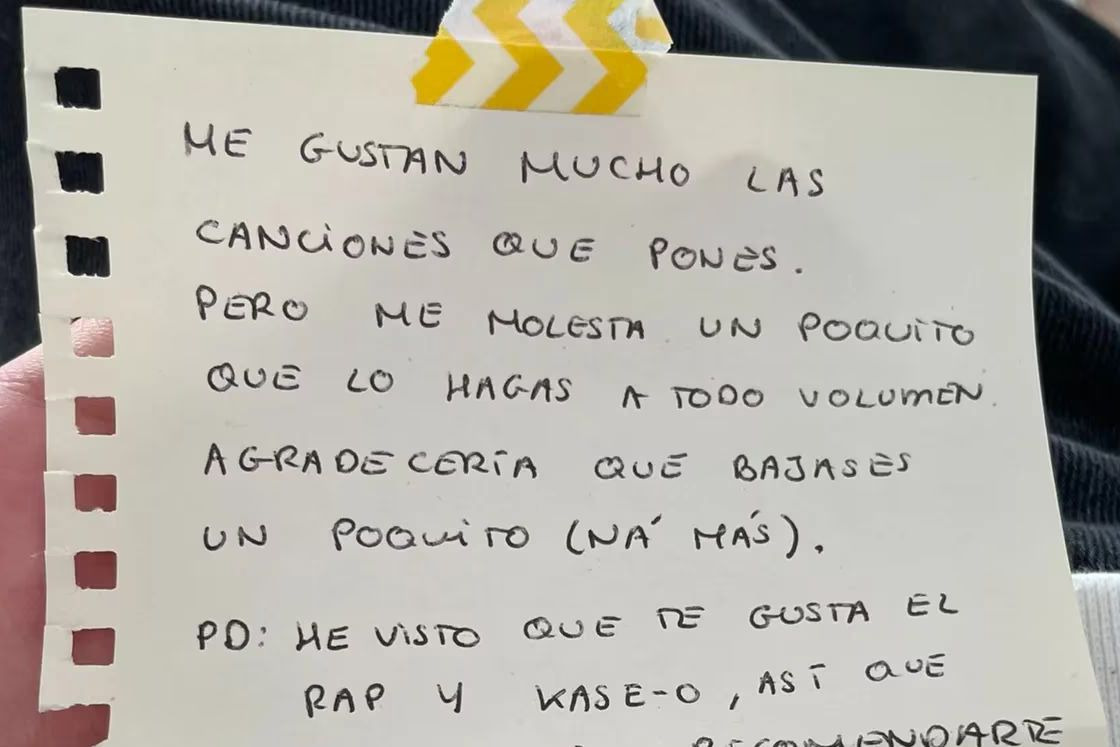 ME GUSTAN MUCHO LAS
CANCIONES QUE PONES.
PERO ME MOLESTA UN POQUITO
QUE LO HAGAS A TODO VOLUMEN.
AGRADECERÍA QUE BAJASES
UN POQUITO (NÁ MÁS).
PD: HE VISTO QUE TE GUSTA EL
RAP Y KASE-O, ASÍ QUE
RECOMENDARTE